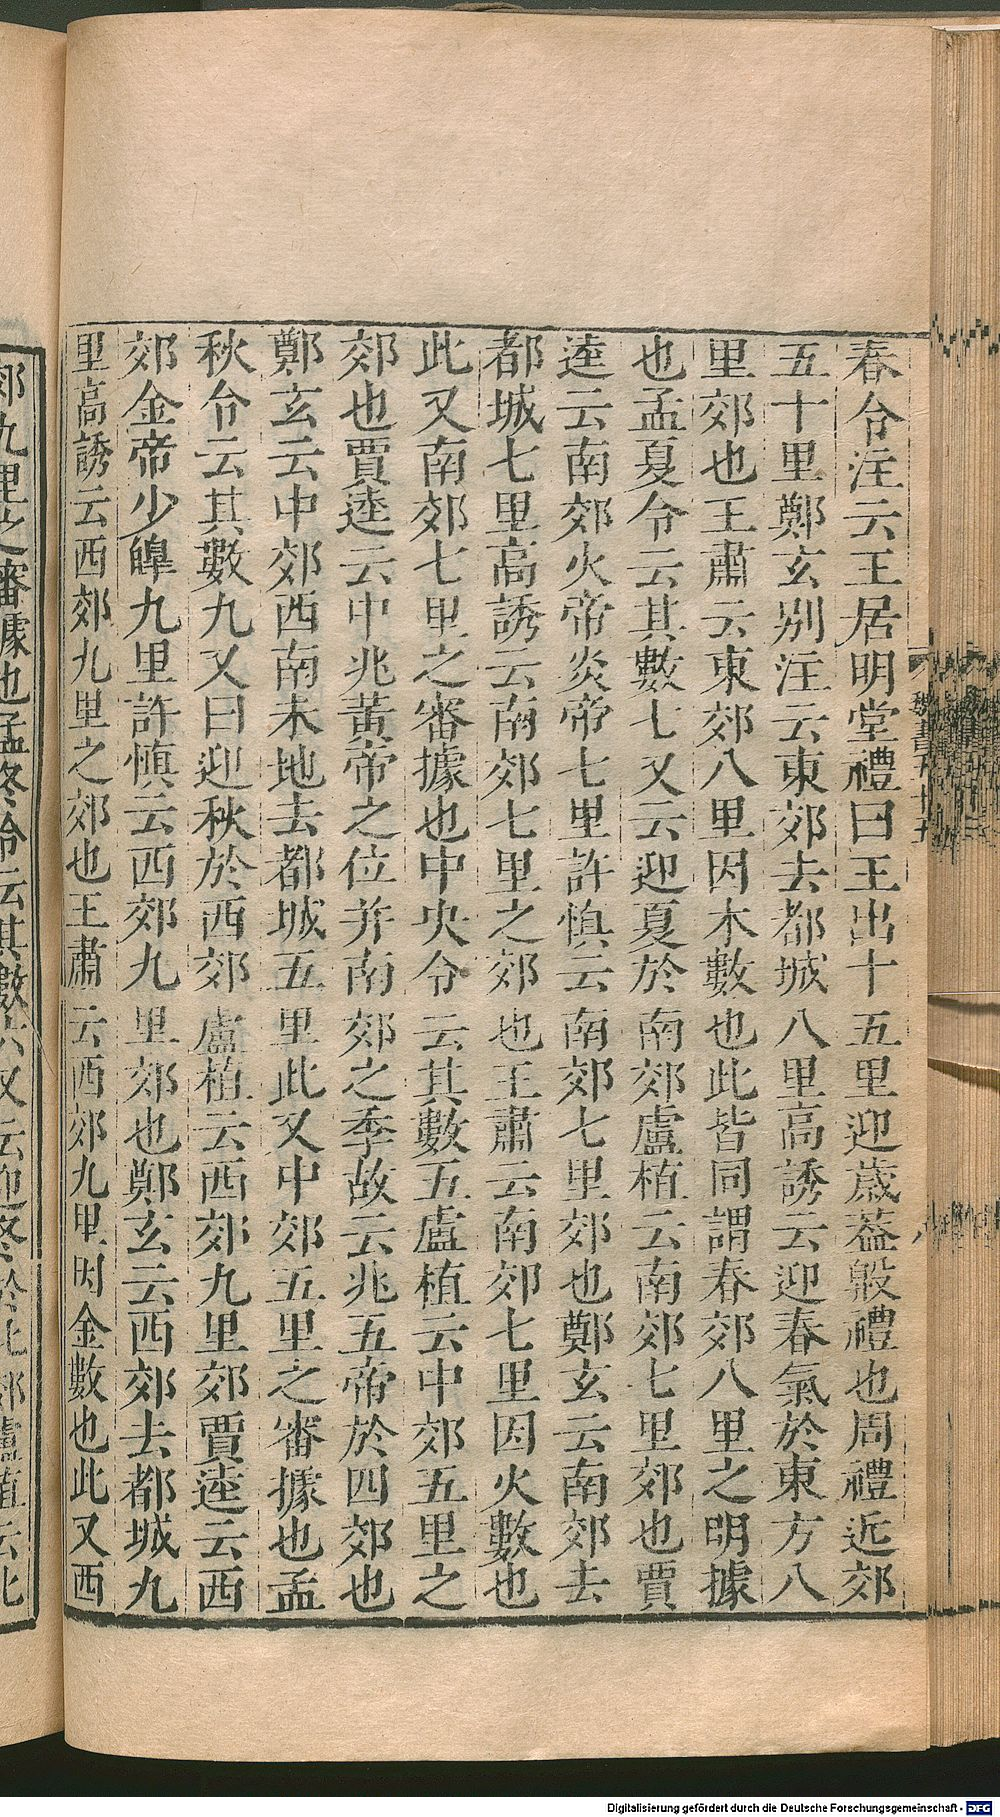 春令注云王居明堂禮曰王出十五里迎歲葢殷禮也周禮近郊
五十里鄭玄別注云東郊去都城八里高誘云迎春氣於東方八
里郊也王肅云東郊八里因木數也此皆同謂春郊八里之明據
也孟夏令云其數七又云迎夏於南郊盧植云南郊七里郊也賈
逵云南郊火帝炎帝七里許慎云南郊七里郊也鄭玄云南郊去
都城七里高誘云南郊七里之郊也王肅云南郊七里因火數也
此又南郊七里之審據也中央令云其數五盧植云中郊五里之
郊也賈逵云中兆黃帝之位并南郊之季故云兆五帝於四郊也
鄭玄云中郊西南未地去都城五里此又中郊五里之審據也孟
秋令云其數九又曰迎秋於西郊盧植云西郊九里郊賈逵云西
郊金帝少皥九里許慎云西郊九里郊也鄭玄云西郊去都城九
里高誘云西郊九里之郊也王肅云西郊九里因金數也此又西
郊九里之審據也孟冬令云其數六又云迎冬於北郊盧植云北
Digitalisierung gefördert durch die Deutsche Forschungsgemeinschaft - DFG